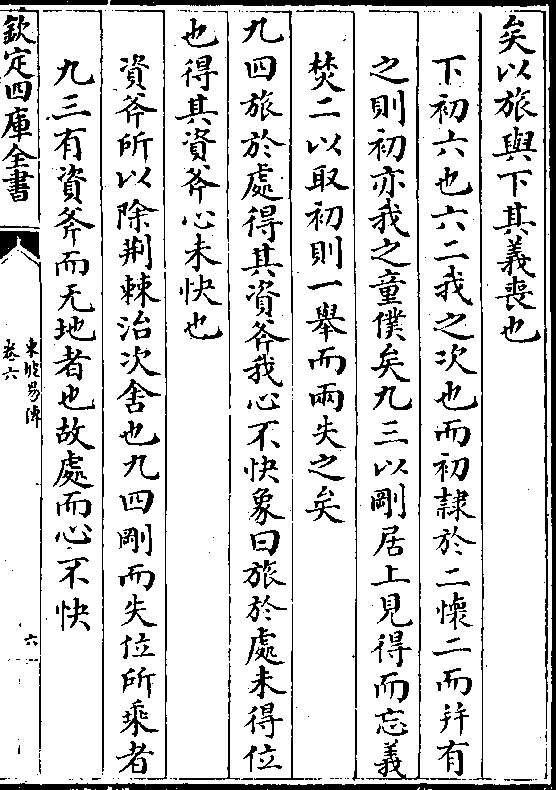 矣以旅與下其義喪也
下初六也六二我之次也而初隷於二懷二而并有
之則初亦我之童僕矣九三以剛居上見得而忘義
焚二以取初則一舉而兩失之矣
九四旅於處得其資斧我心不快象曰旅於處未得位
也得其資斧心未快也
資斧所以除荆棘治次舍也九四剛而失位所乘者
九三有資斧而无地者也故處而心不快
欽定四庫全書
東坡易傳
卷六
六